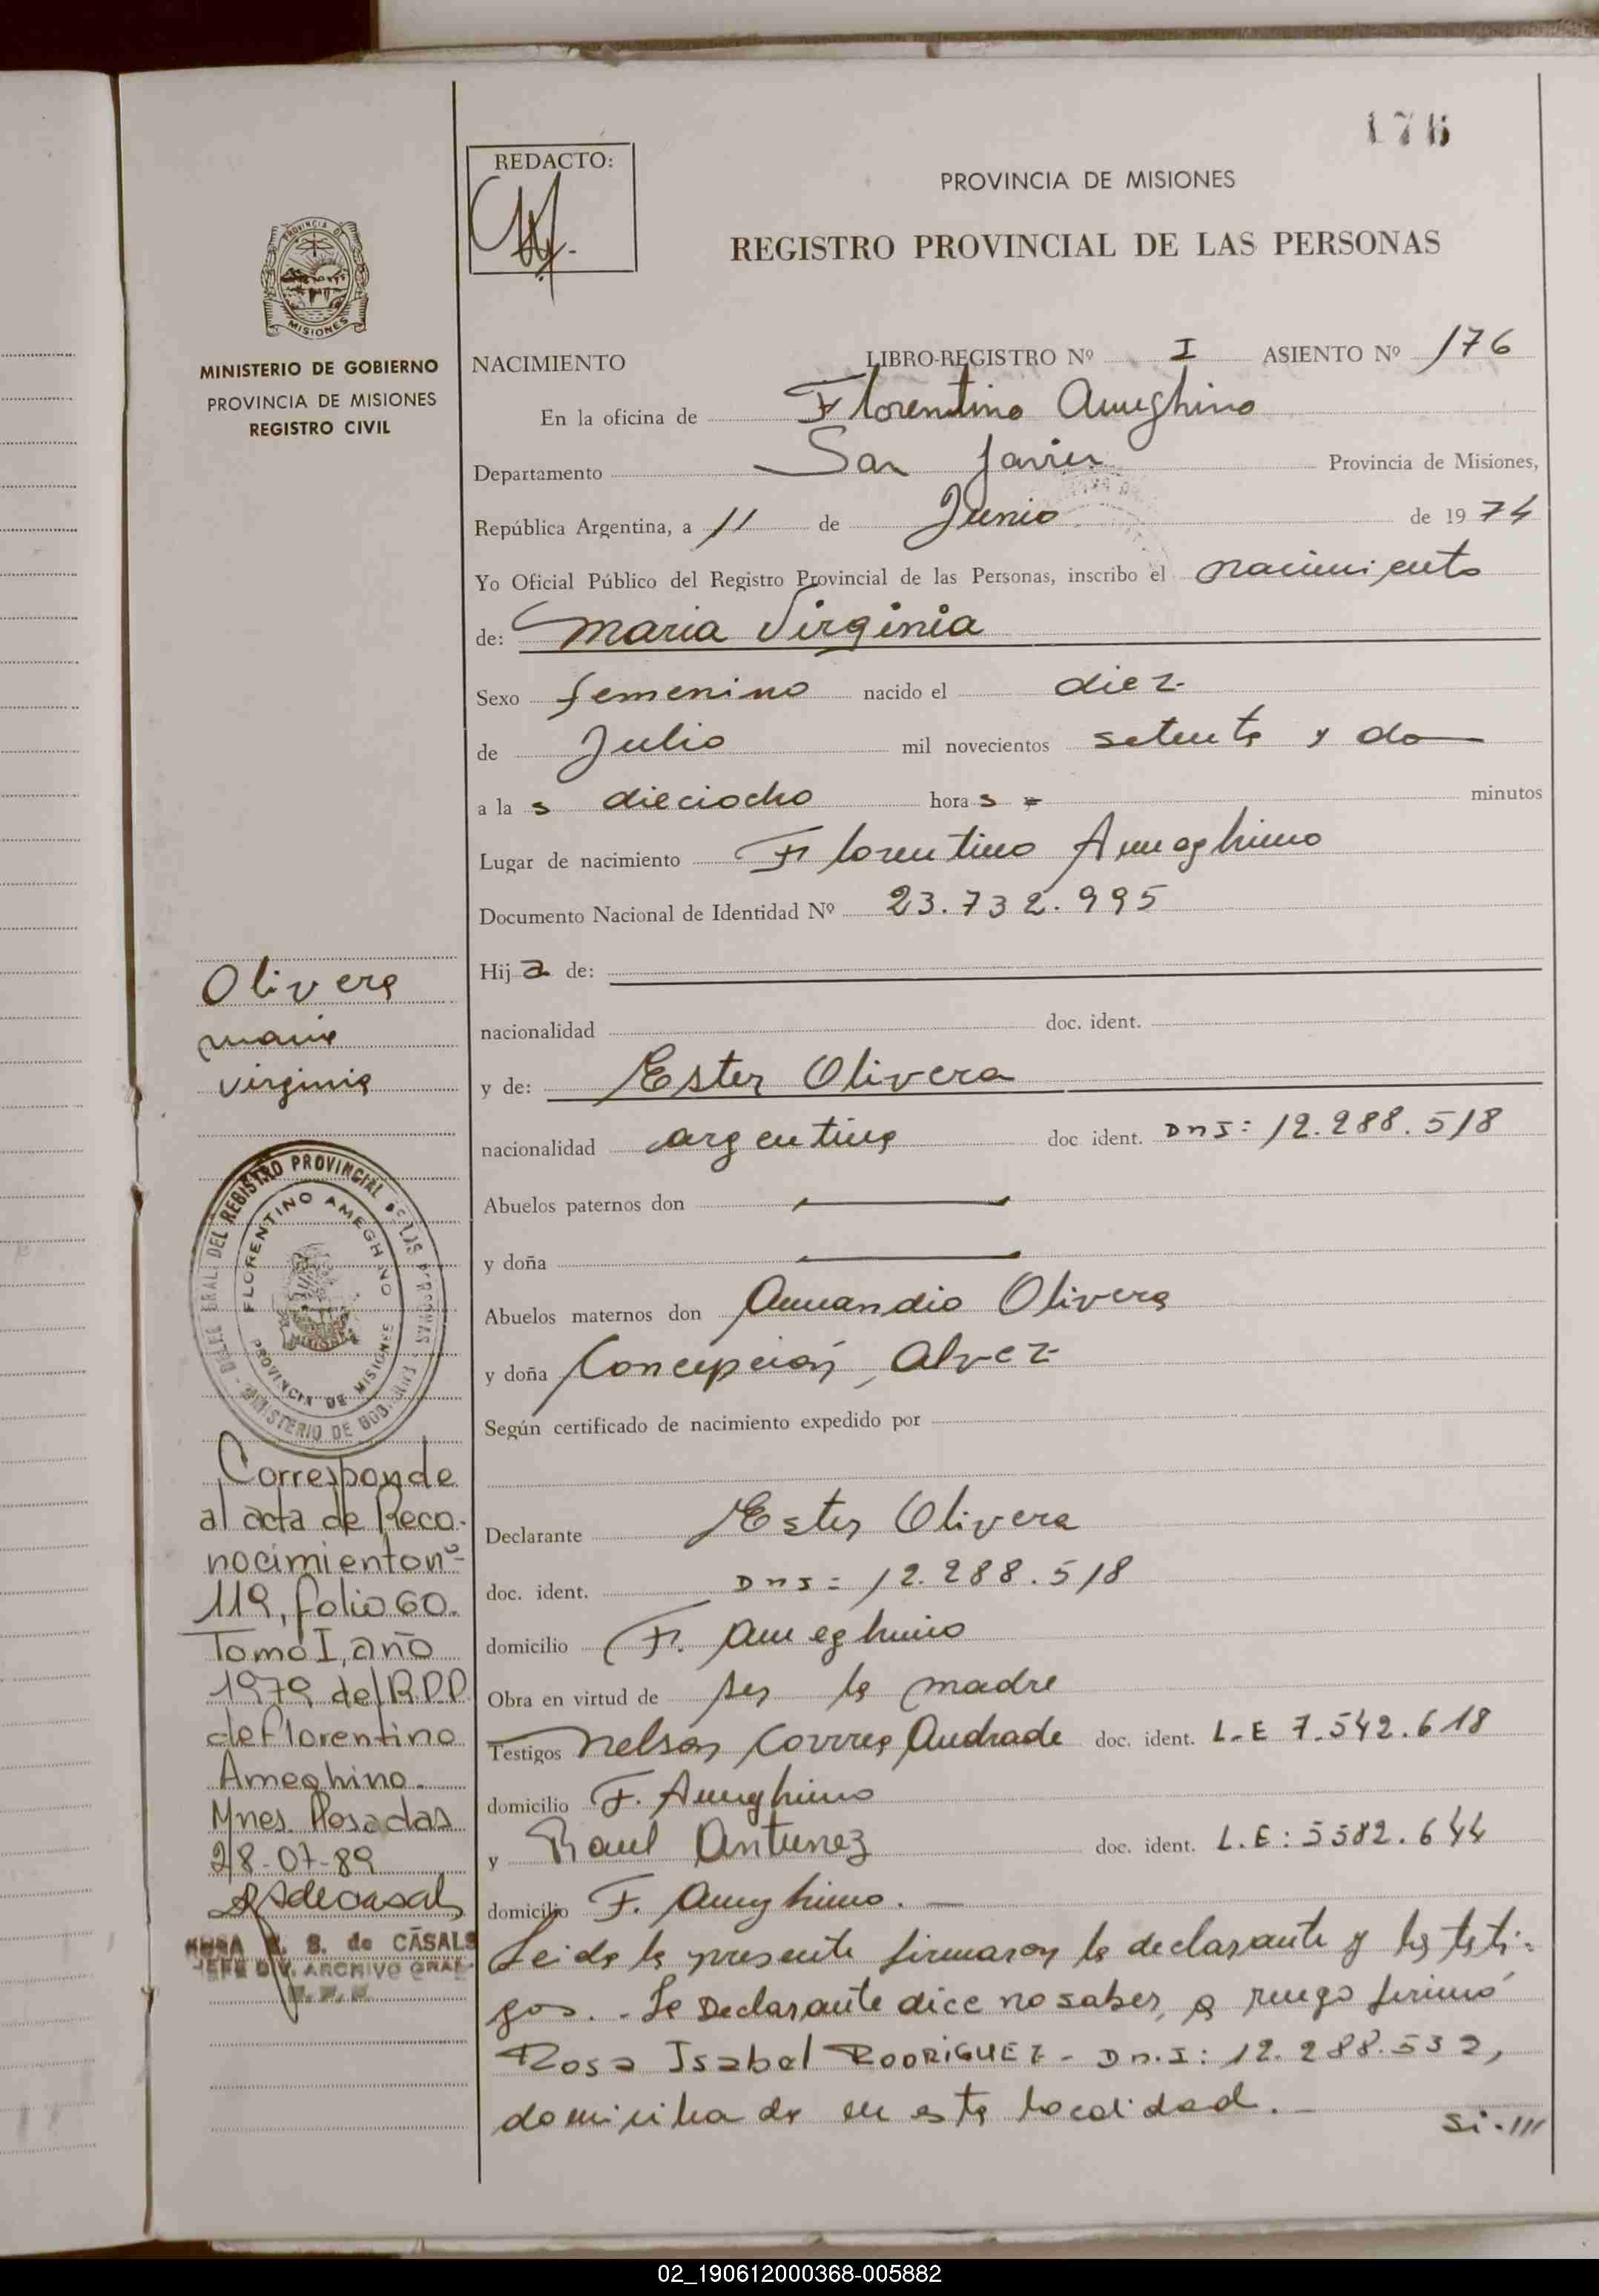 176
REDACTO:
PROVINCIA DE MISIONES
REGISTRO PROVINCIAL DE LAS PERSONAS
PROVINCIA DE
MISIONES
MINISTERIO DE GOBIERNO
PROVINCIA DE MISIONES
REGISTRO CIVIL
NACIMIENTO LIBRO-REGISTRO Nº I ASIENTO Nº 176
En la oficina de Florentino Ameghino
Departamento San Javier Provincia de Misiones,
República Argentina, a 11 de Junio de 1974
Yo Oficial Público del Registro Provincial de las Personas, inscribo el nacimiento
de: Maria Virginia
Sexo femenino nacido el diez
de Julio mil novecientos setenta y dos
a las dieciocho horas = minutos
Lugar de nacimiento Florentino Ameghino
Documento Nacional de Identidad Nº 23.732.995
Hija de:
nacionalidad doc. ident.
y de: Ester Olivera
nacionalidad argentina doc ident. DNI: 12.288.518
Abuelos paternos don
y doña
Abuelos maternos don Amandio Olivera
y doña Concepción Alvez
Según certificado de nacimiento expedido por
Declarante Ester Olivera
doc. ident. DNI= 12.288.518
domicilio F. Ameghino
Obra en virtud de ser la madre
Testigos Nelson Correa Andrade doc. ident. L.E 7.542.618
domicilio F. Ameghino
y Raul Antunez doc. ident. L.E: 5582.644
domicilio F. Ameghino.
Leida la presente firmaron la declarante y los testi-
gos. - La Declarante dice no saber, a ruego firmó
Rosa Isabel RODRIGUEZ - Dn.I: 12.288.532,
domiciliada en esta localidad. - si-///
Olivera
maria
virginia
DELEG. GRAL. DEL REGISTRO PROVINCIAL DE LAS PERSONAS
FLORENTINO AMEGHINO
PROVINCIA DE MISIONES
MINISTERIO DE GOBIERNO
Corresponde
al acta de Reco-
nocimiento nº
119, folio 60.
Tomo I, año
1979 del R.P.P
de Florentino
Ameghino.
Mnes. Posadas
28-07-89
S. de CASALS
JEFE DIV. ARCHIVO GRAL.
02_190612000368-005882